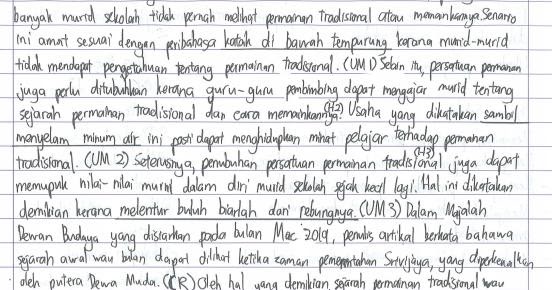 banyak murid sekolah tidak pernah melihat permainan tradisional atau memainkannya. Senario
ini amat sesuai dengan peribahasa katak di bawah tempurung kerana murid-murid
tidak mendapat pengetahuan tentang permainan tradisional. (UM 1) Selain itu, persatuan permainan
juga perlu ditubuhkan kerana guru-guru pembimbing dapat mengajar murid tentang
sejarah permainan tradisional dan cara memainkannya. (H2) Usaha yang dikatakan sambil
menyelam minum air ini pasti dapat menghidupkan minat pelajar terhadap permainan
tradisional. (UM 2) Seterusnya, penubuhan persatuan permainan tradisional (H3) juga dapat
memupuk nilai-nilai murni dalam diri murid sekolah sejak kecil lagi. Hal ini dikatakan
demikian kerana melentur buluh biarlah dari rebungnya. (UM3) Dalam Majalah
Dewan Budaya yang disiarkan pada bulan Mac 2019, penulis artikal berkata bahawa
sejarah awal wau bulan dapat dilihat ketika zaman pemerintahan Srivijaya, yang diperkenalkan
oleh putera Dewa Muda. (CR) Oleh hal yang demikian sejarah permainan tradisional wau